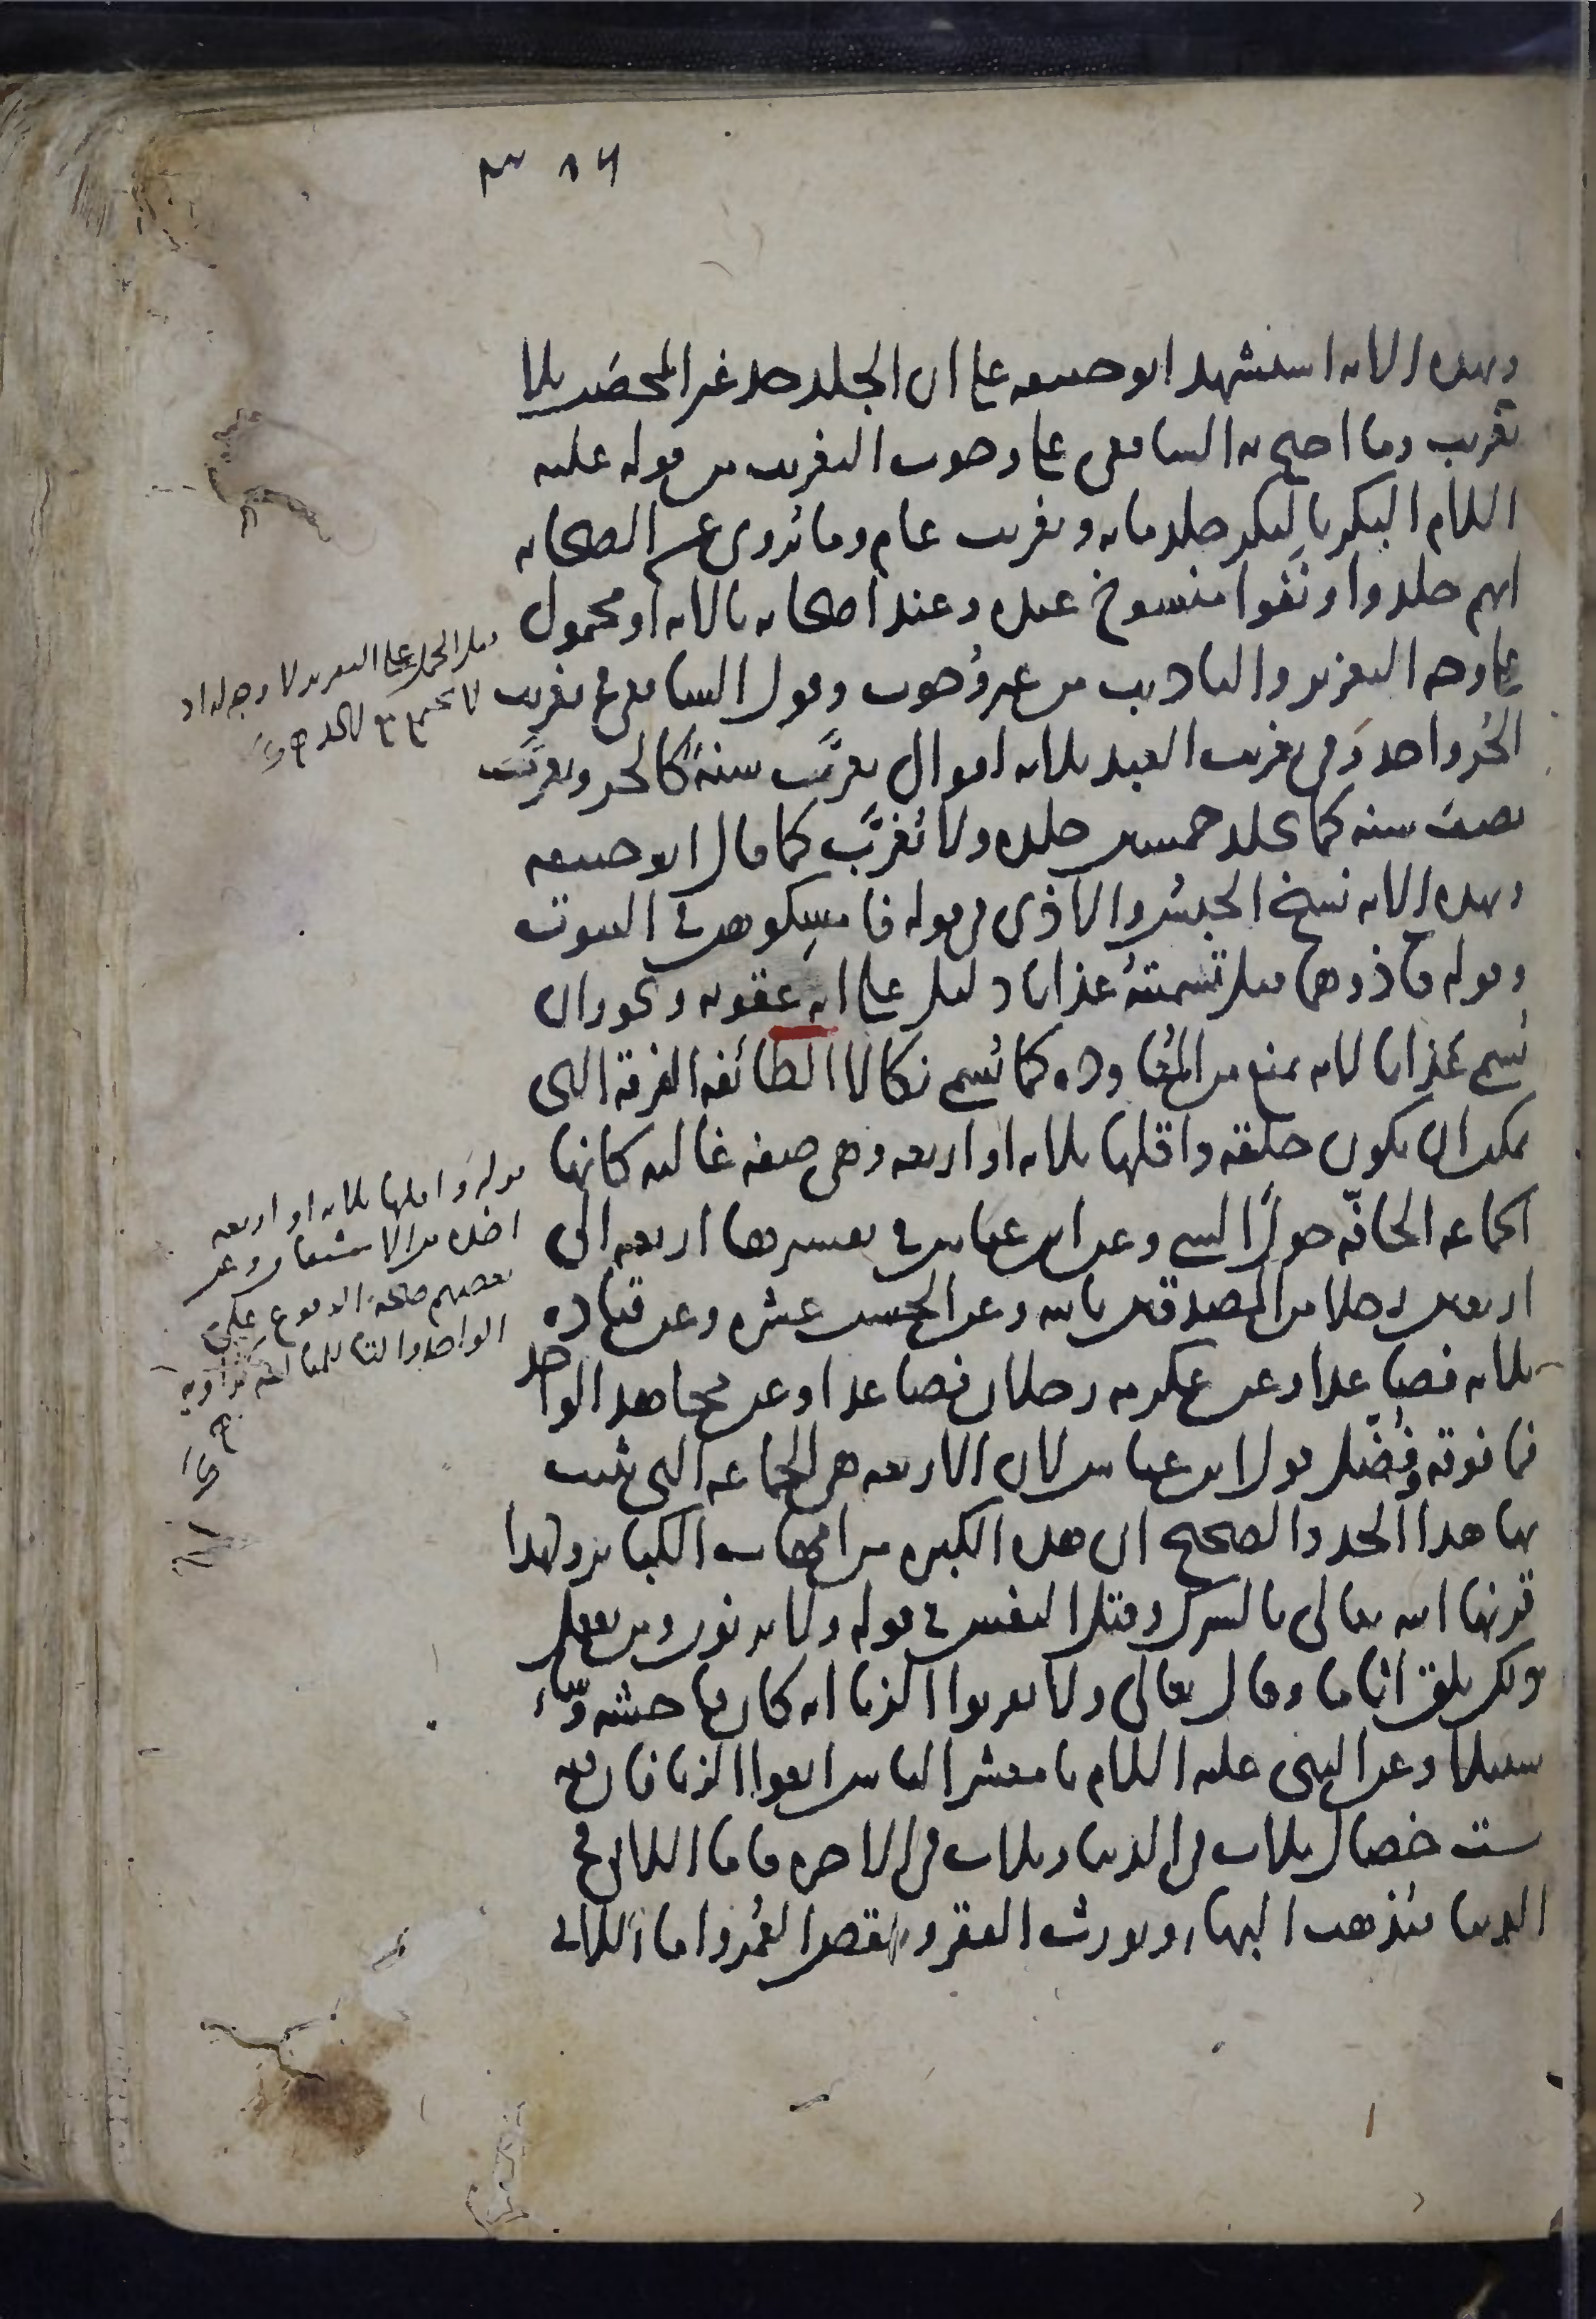 وبهذه الآية استشهد ابو حنيفة على ان الجلد حد غير المحصن بلا
تغريب وما احتج به الشافعي على وجوب التغريب من قوله عليه
السلام البكر بالبكر جلد مائة وتغريب عام وما يُروى عن الصحابة
انهم جلدوا ونَفَوا منسوخ عنده وعند اصحابه بالآية او محمول
على وجه التعزير والتأديب من غير وُجوب وقول الشافعي في تغريب
الحُر واحد وَفي تغريب العبد ثلاثة اقوال يغرَّب سنةً كالحر ويغرَّب
نصف سنة كما يجلد خمسين جلدة ولا يُغرَّب كما قال ابو حنيفة
وبهذه الآية نسخ الحبسُ والاذى في قوله فامسِكوهن في البيوت
وقوله فآذوهما قيل تسميتهُ عذابا دليل على انه عقوبة ويجوز ان
يُسمى عذابا لانه يمنع من المُعاودة كما يُسمى نكالا الطائفة الفرقة التي
يمكن ان يكون حلقة واقلها ثلاثة او اربعة وهي صفة غالبة كانها
الجماعة الحافّة حولَ الشي وعن ابن عباس في تفسيرها اربعة الى
اربعين رجلا من المصدقين بالله وعن الحسن عشرة وعن قتادة
ثلاثة فصاعدا وعن عكرمة رجلان فصاعدا وعن مجاهد الواحد
فما فوقه وفُضّل قول ابن عباس لان الاربعة هي الجماعة التي يثبت
بها هذا الحد والصحيح ان هذه الكبيرة من امهات الكبائر ولهذا
قرنها الله تعالى بالشرك وقتل النفس في قوله ولا يزنون ومن يفعل
ذلك يلق اثاما وقال تعالى ولا تقربوا الزنا انه كان فاحشة وساء
سبيلا وعن النبي عليه السلام يا معشر الناس اتقوا الزنا فان فيه
ست خصال ثلاث في الدنيا وثلاث في الاخرة فاما اللاتي في
الدنيا فيُذهب البهاء ويورث الفقر وينقص العُمُر واما اللاتي
قيل الحمل على التعزير لا وجه له اذ
لا يجتمع مع الحد
قوله واقلها ثلاثة او اربعة
اخذه من الاشتقاق وعن
بعضهم صحة الوقوع على
الواحد والتاء للمبالغة كراوية